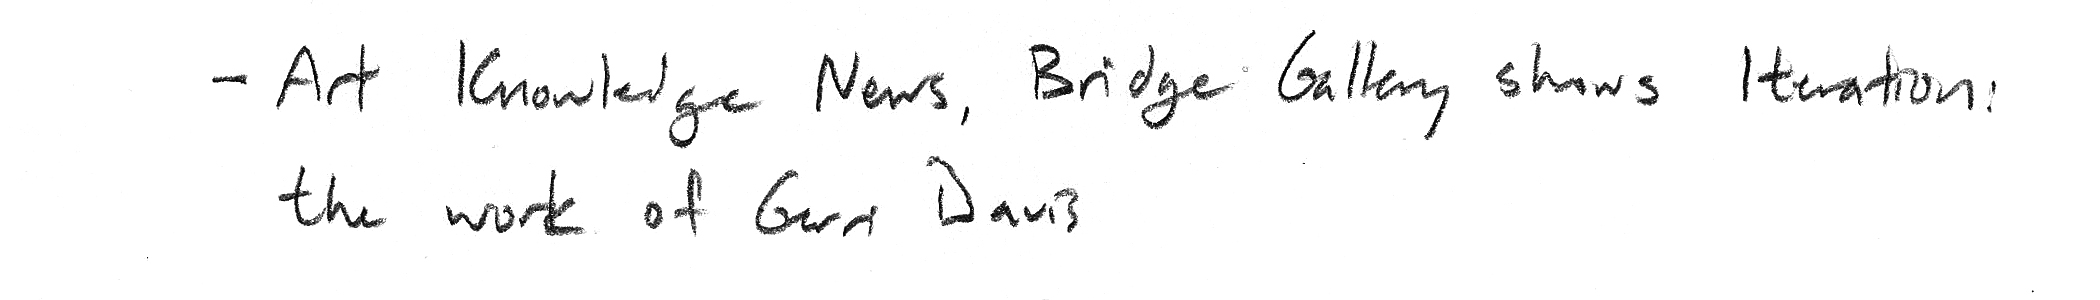 - Art Knowledge News, Bridge Gallery shows Iteration:
the work of Gerri Davis